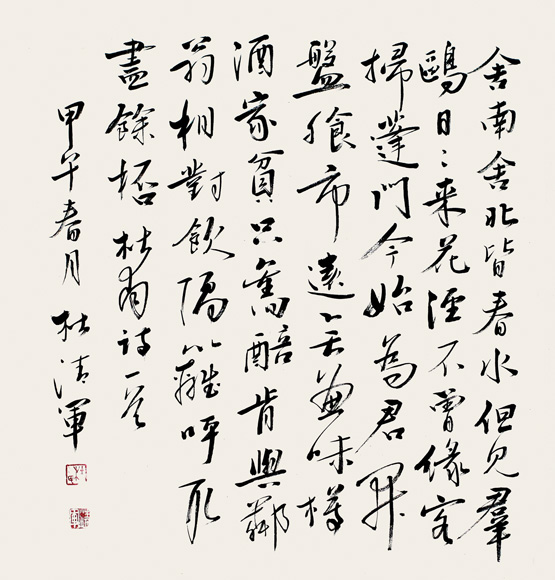 舍南舍北皆春水但見羣
鷗日々来花徑不曾緣客
掃蓬門今始為君開
盤飧市遠無兼味樽
酒家貧只舊醅肯與鄰
翁相對飲隔籬呼取
盡餘桮 杜甫詩一首
甲午春月 杜清軍